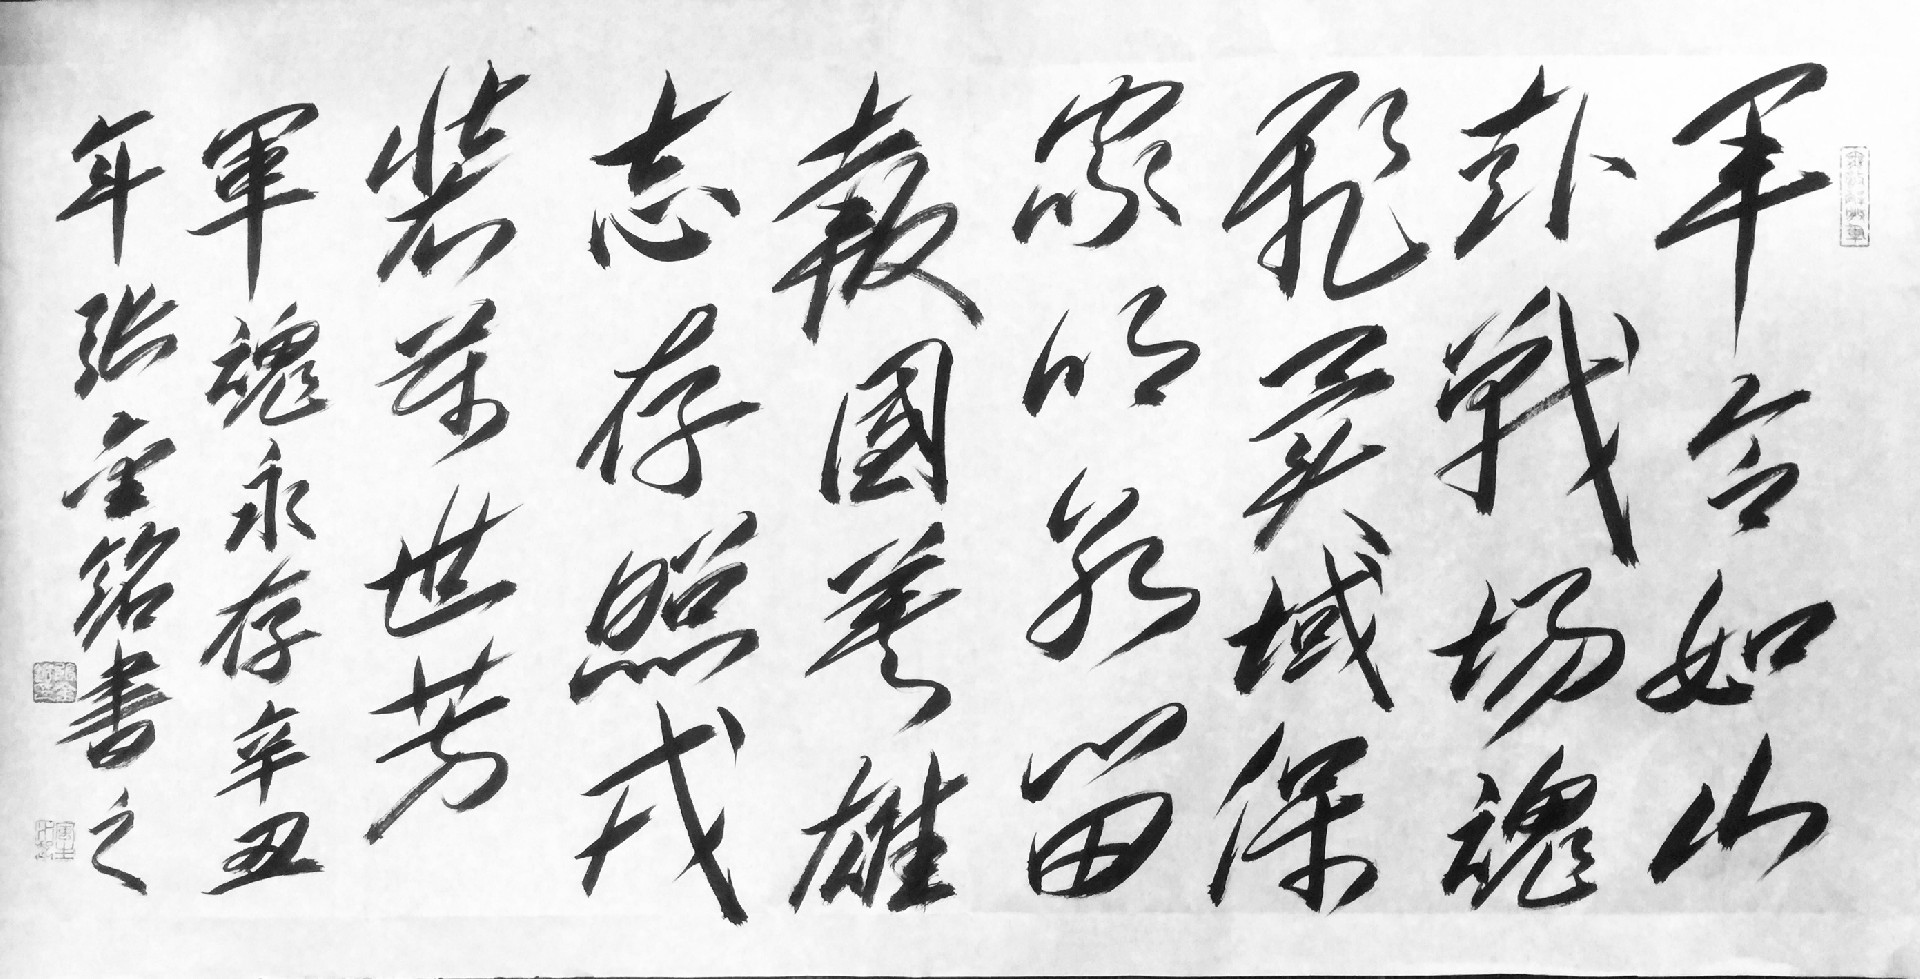 军令如山
赴戰场魂
飛异域保
家明前留
報國英雄
志存照戎
装万世芳
軍魂永存辛丑
年張金銘書之